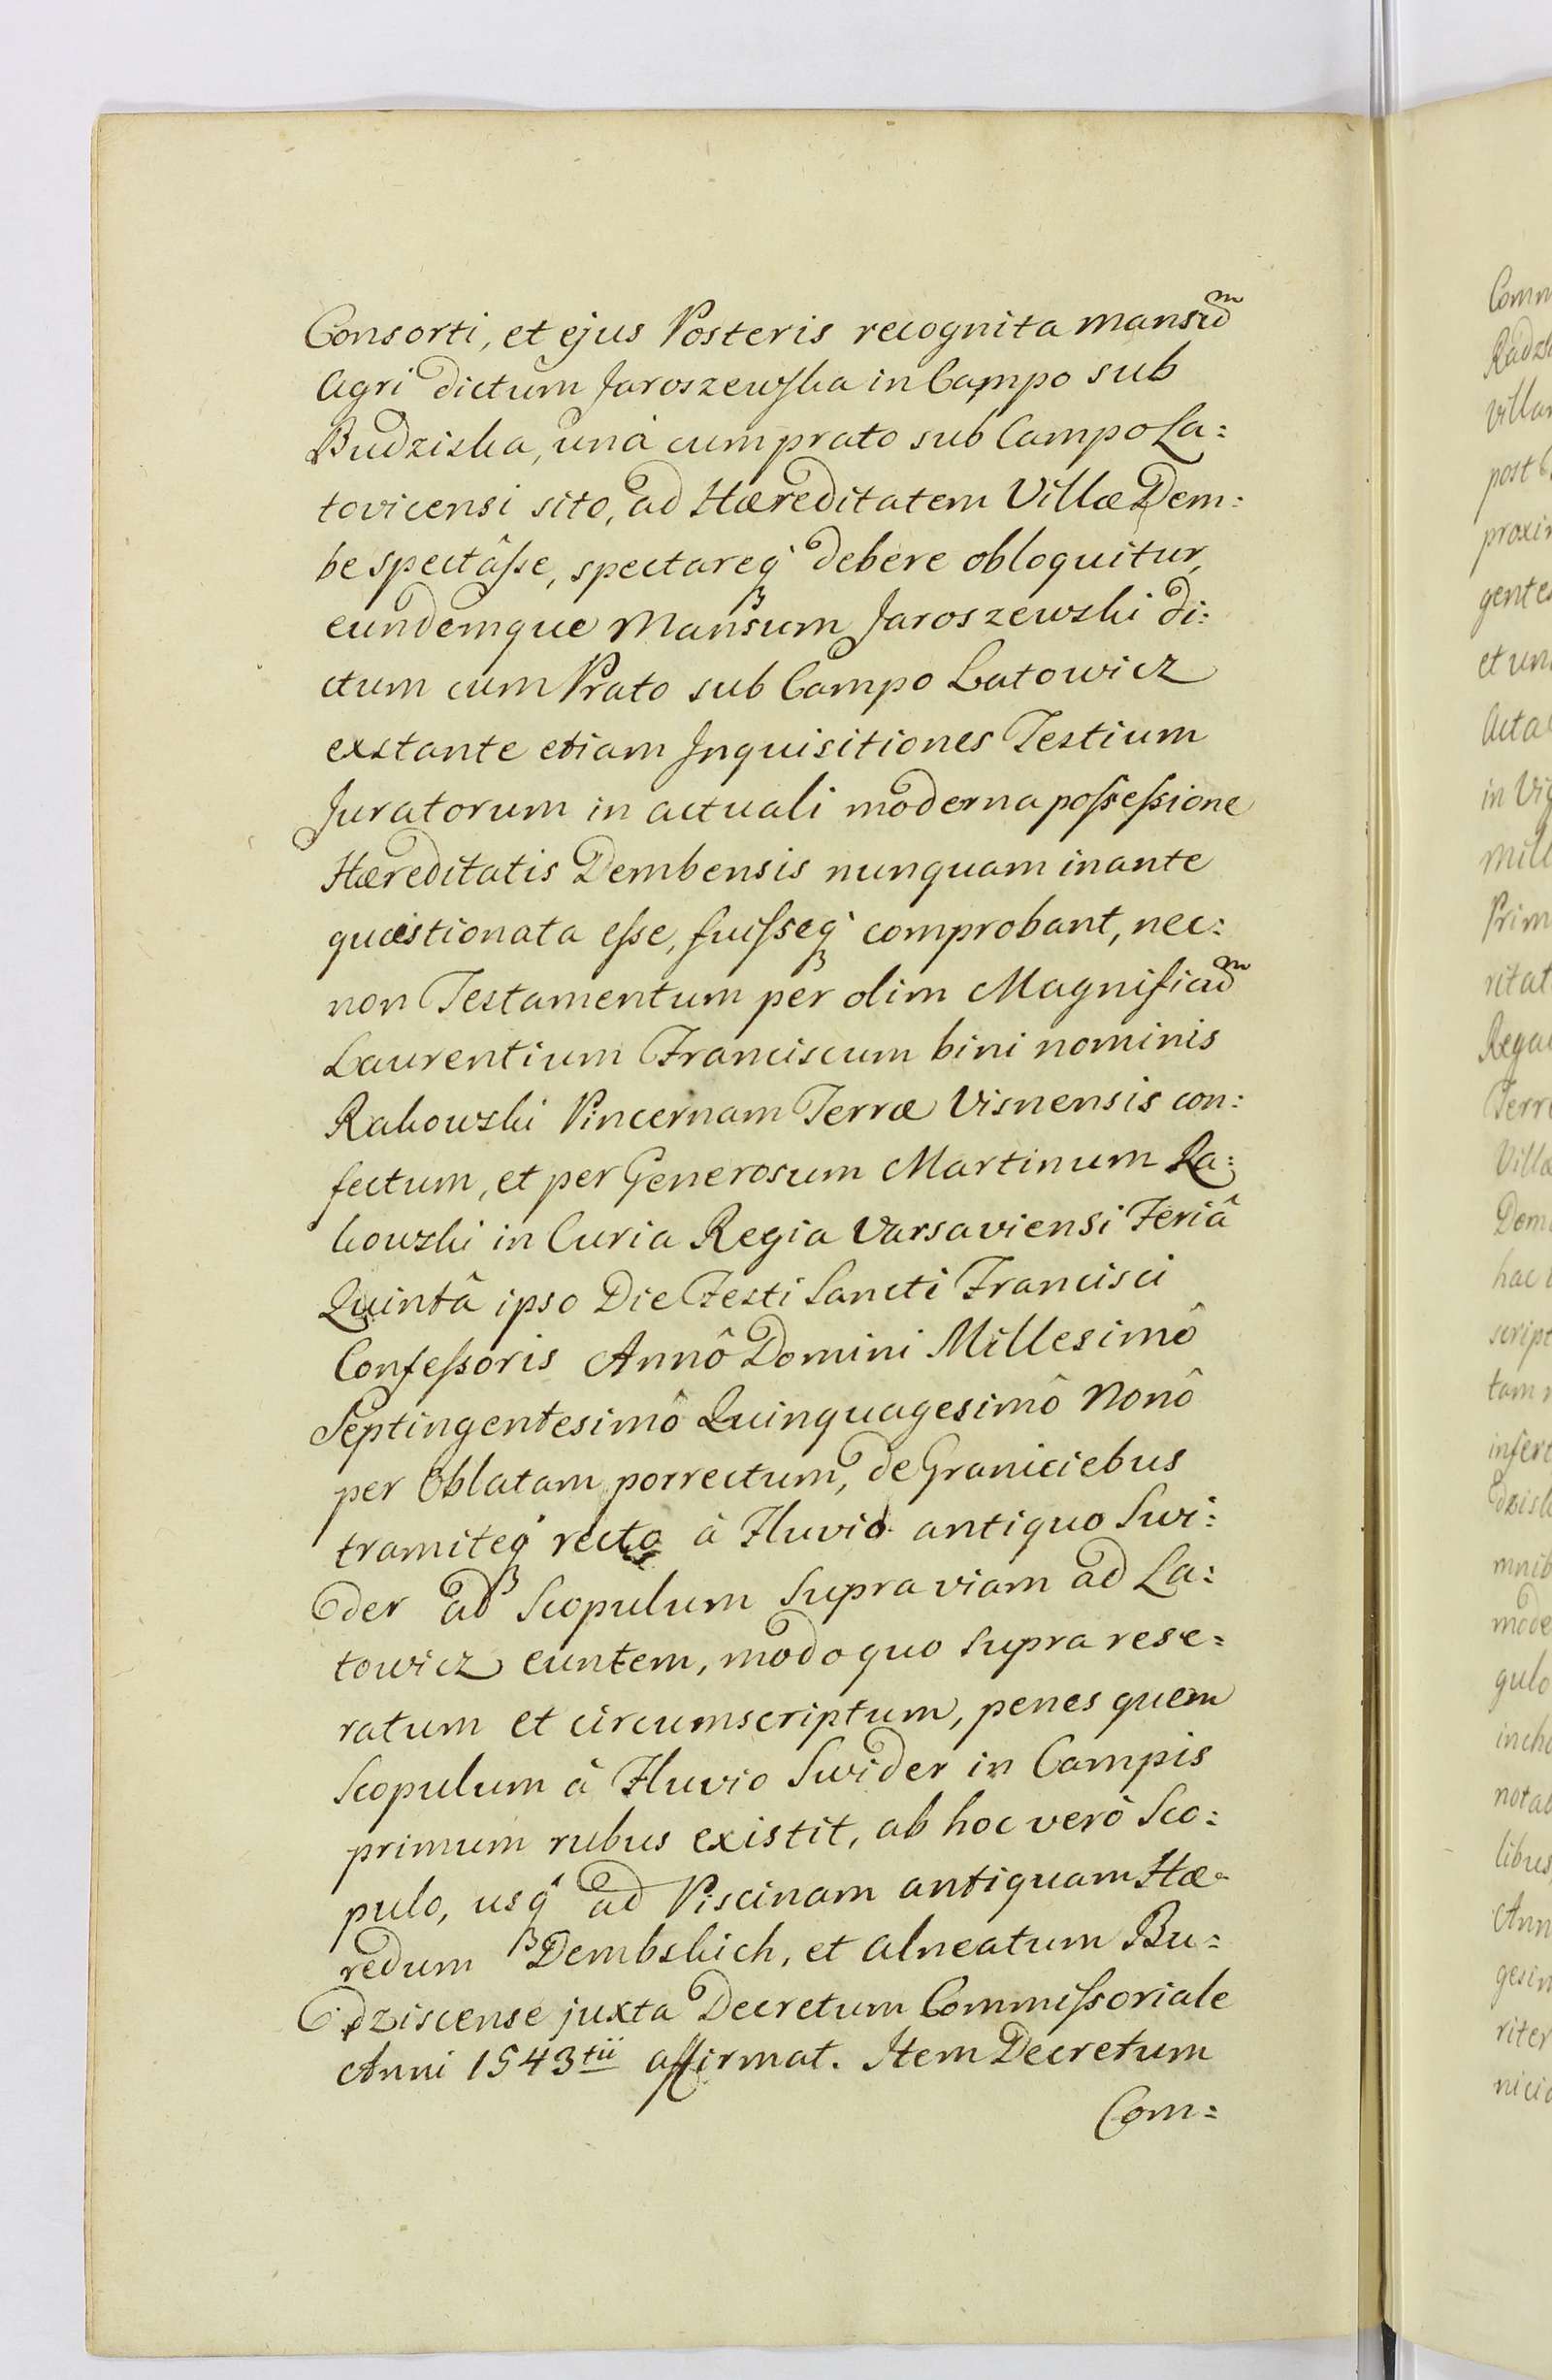 Consorti, et ejus Posteris recognita mansuᵐ
Agri dictum Jaroszewska in Campo sub
Budziska, unà cum prato sub Campo La:
tovicensi sito, ad Hæreditatem Villæ Dem:
be spectâsse, spectareq3 debere obloquitur,
eundemque Mansum Jaroszewski di:
ctum cum Prato sub Campo Latowicz
extante etiam Inquisitiones Testium
Juratorum in actuali moderna possessione
Hæreditatis Dembensis nunquam inante
quæstionata esse, fuisseq3 comprobant, nec:
non Testamentum per olim Magnificuᵐ
Laurentium Franciscum bini nominis
Rakowski Pincernam Terræ Visnensis con:
fectum, et per Generosum Martinum Ra:
kowski in Curia Regia Varsaviensi Feriâ
Quintâ ipso Die Festi Sancti Francisci
Confessoris Annô Domini Millesimô
Septingentesimô Quinquagesimô Nonô
per Oblatam porrectum, de Graniciebus
tramiteq3 recto à Fluvio antiquo Swi:
der ad Scopulum supra viam ad La:
towicz euntem, modo quo supra rese:
ratum et circumscriptum, penes quem
Scopulum à Fluvio Swider in Campis
primum rubus existit, ab hoc verò Sco:
pulo, usq3 ad Piscinam antiquam Hæ:
redum Dembskich, et alneatum Bu:
dziscense juxta Decretum Commissoriale
Anni 1543tii affirmat. Item Decretum
Com:
Comm
villa
post
proxi
gente
et un
Acta
in Vi
Mill
Prim
ritat
Rega
Terr
Villæ
Dem
hac
script
tam
insert
dzisk
mnib
mode
gulo
incho
notab
libus
Ann
gesim
riter
nicie